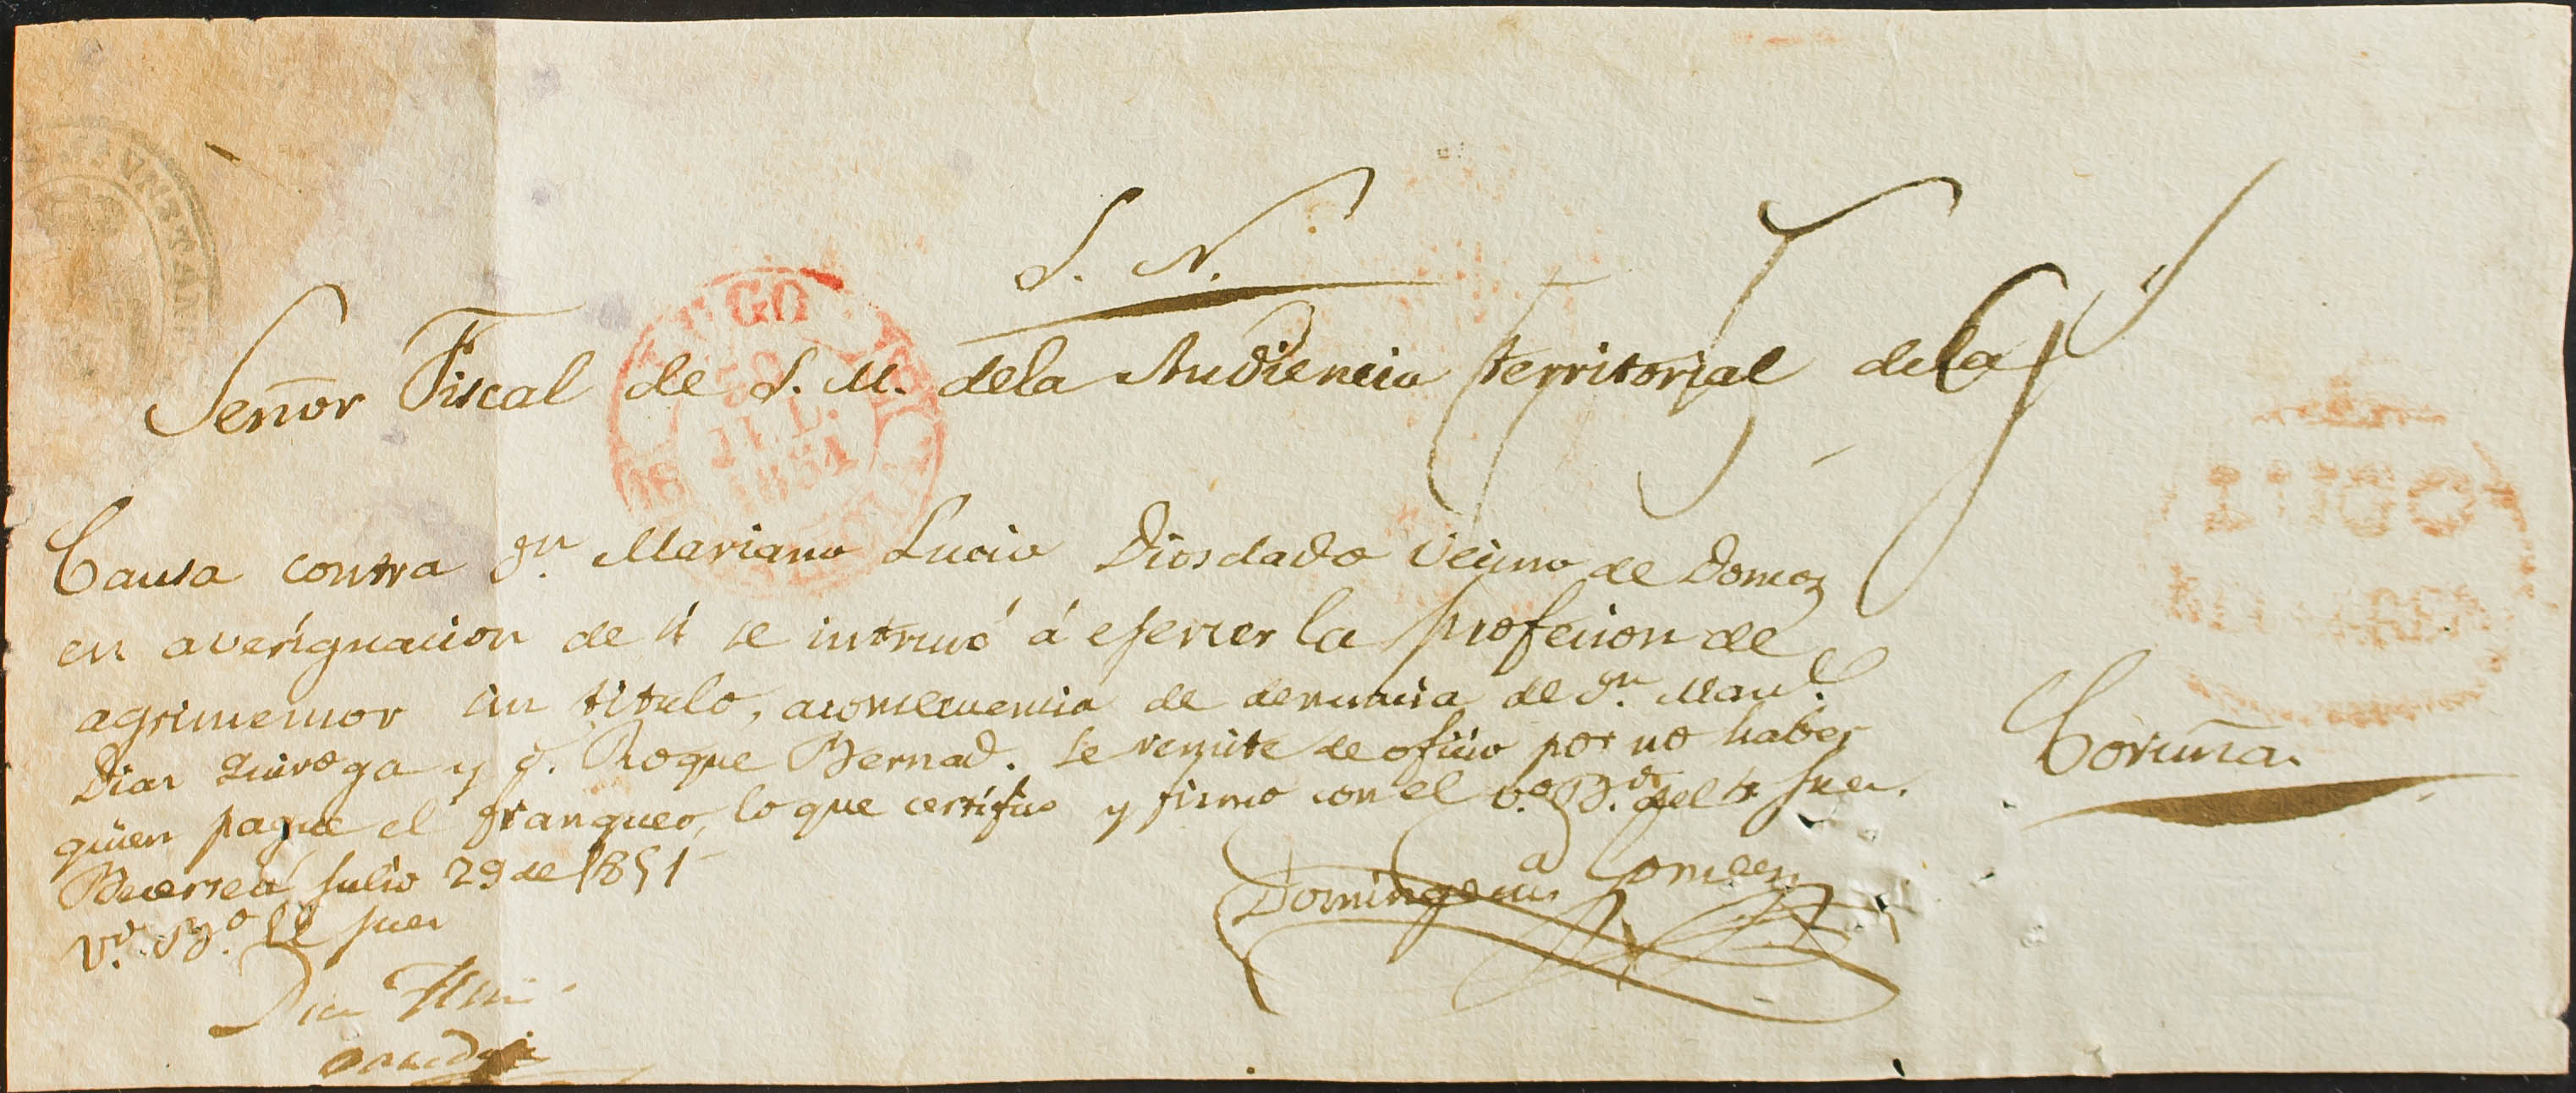 S. N.
Señor Fiscal de S. M. dela Audiencia territorial dela
LUGO
30
JUL.
1851
LUGO
Causa contra Dn. Mariano Lucio Diosdado Vecino de Doncos
en averiguacion de si se intrusó á ejercer la profesion de
agrimensor sin titulo, a consecuencia de denuncia de Dn. Manl.
Diaz Quiroga y D. Roque Bernad. Se remite de oficio por no haber
quien pague el franqueo, lo que certifico y firmo con el V.o B.o del Sr Juez.
Becerreá Julio 29 de 1851
V.o B.o El Juez
Coruña.